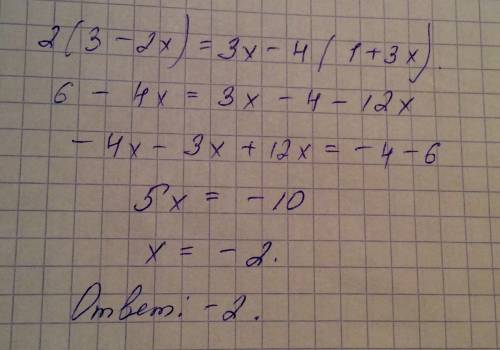 2(3 - 2x) = 3x - 4(1 + 3x).
6 - 4x = 3x - 4 - 12x
- 4x - 3x + 12x = - 4 - 6
5x = - 10
x = - 2.
Ответ: - 2.